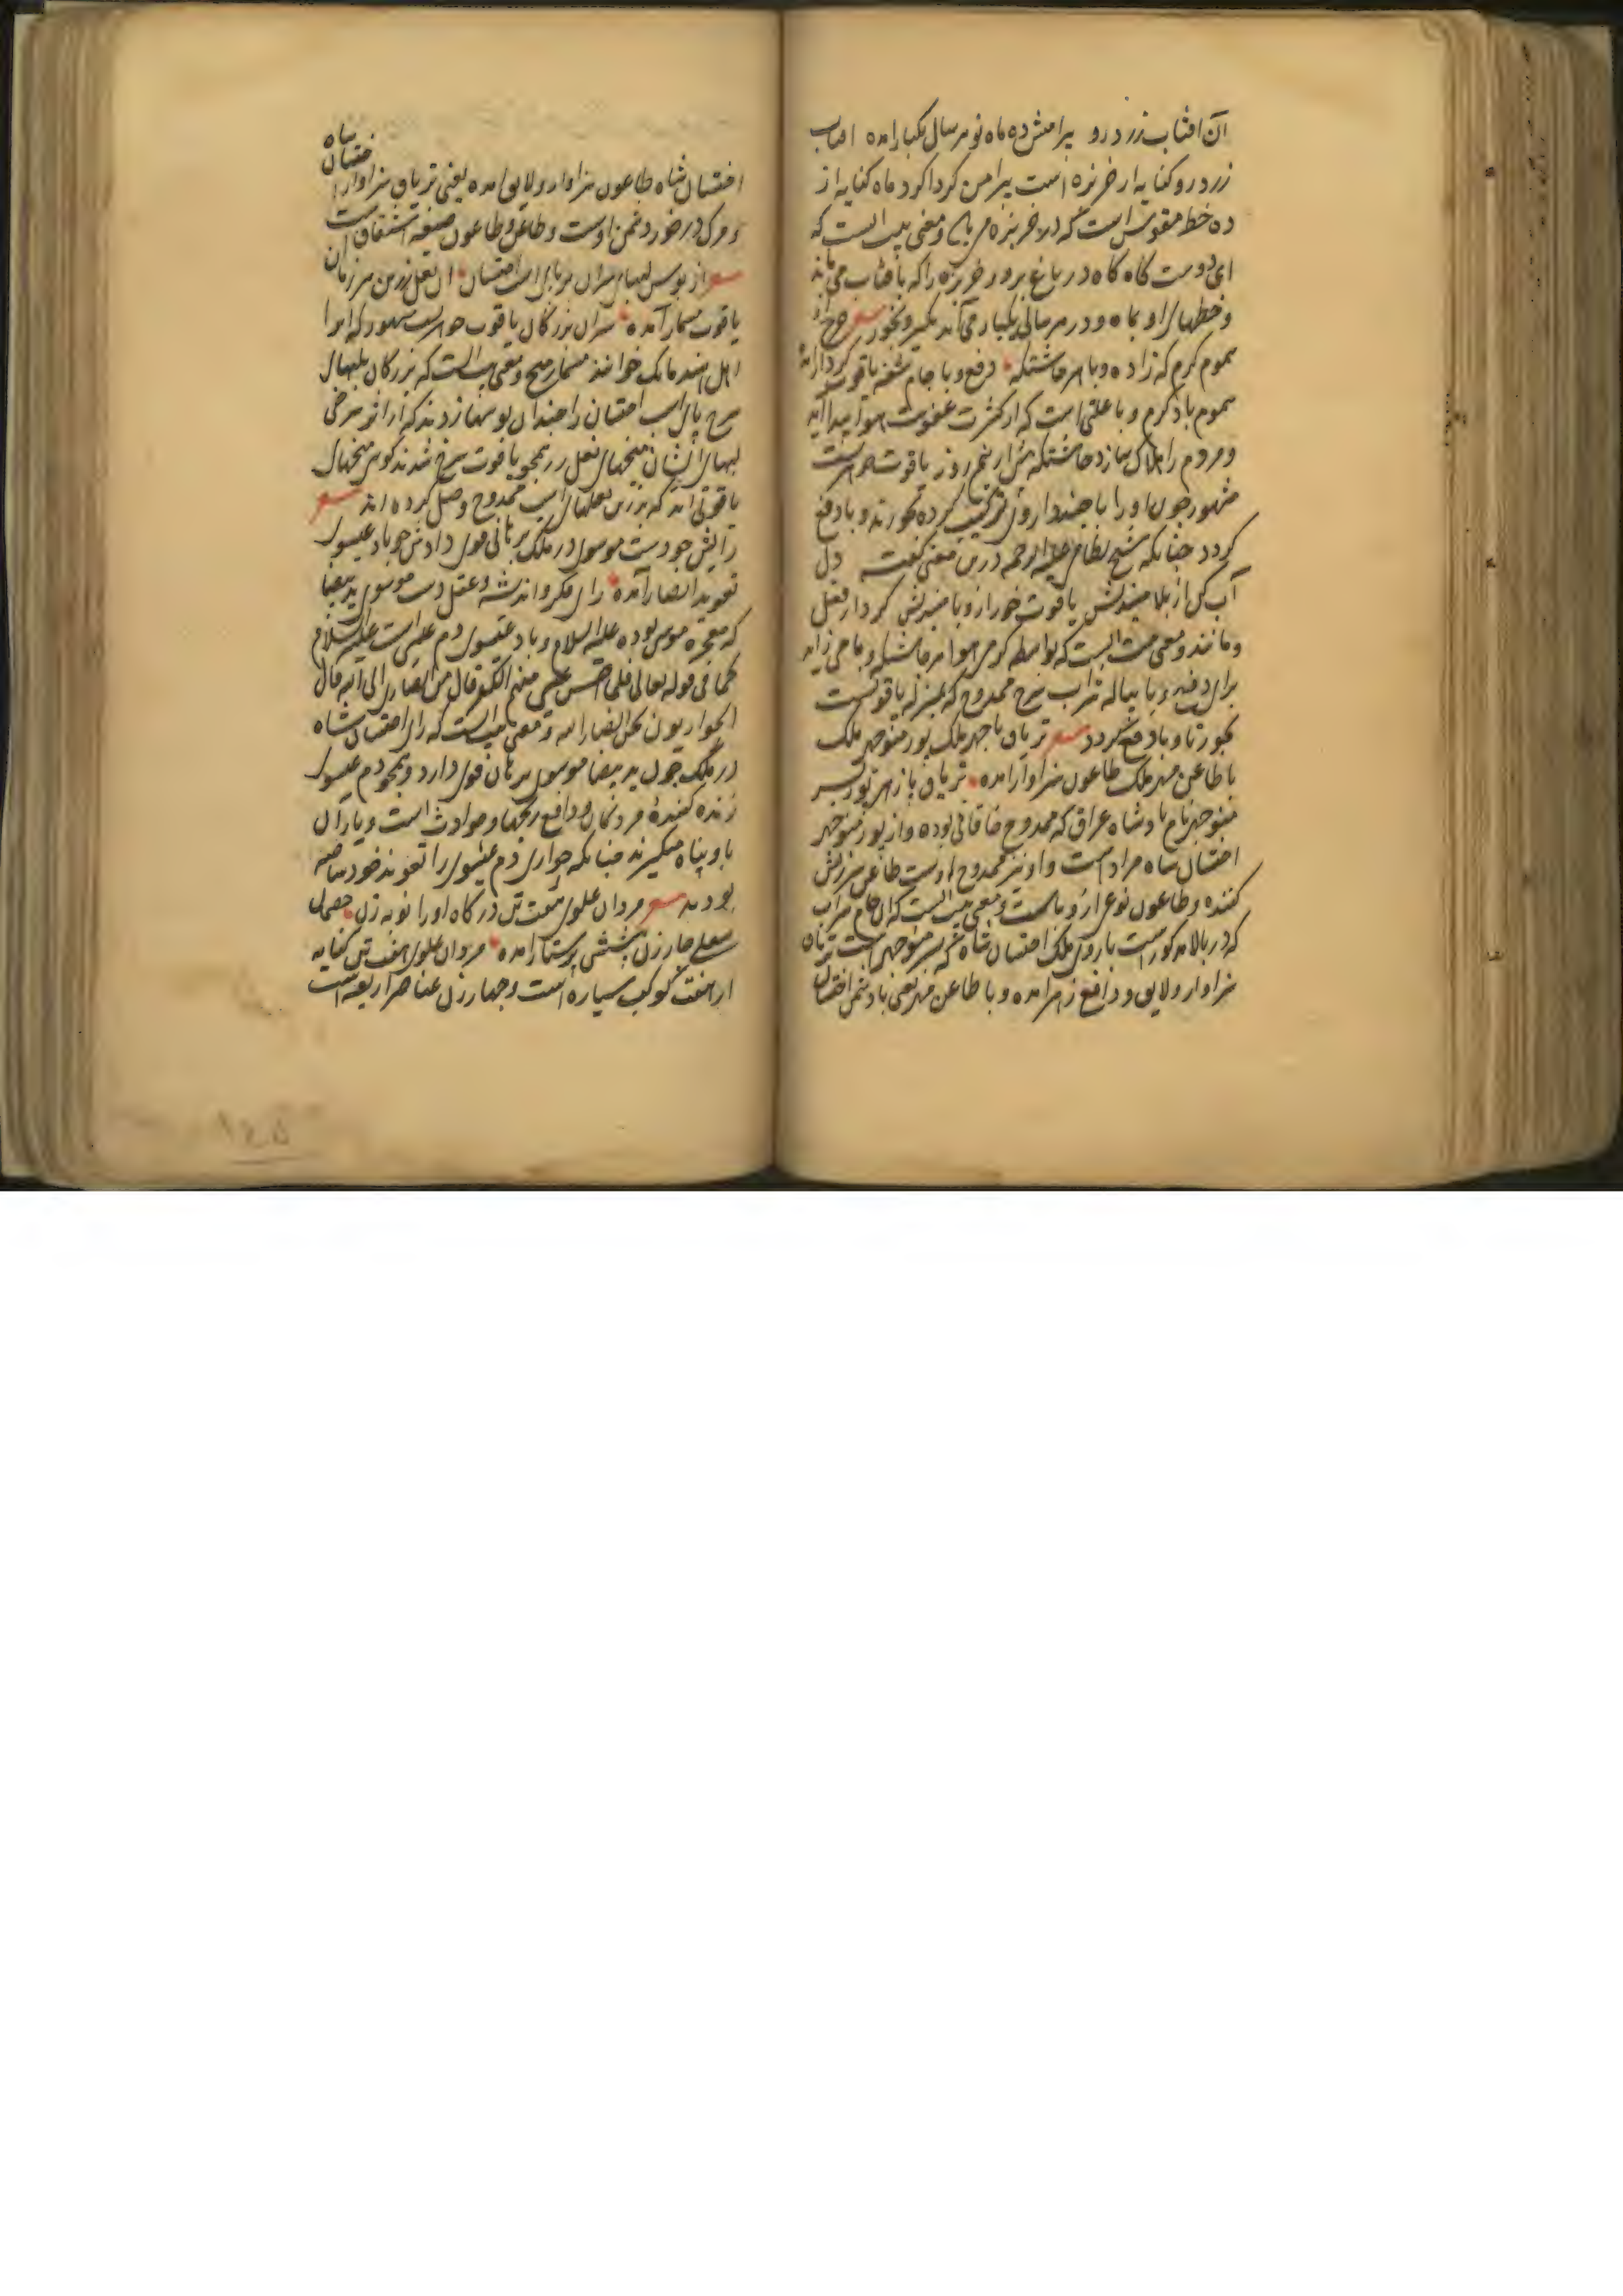 آن افتاب زرد رو پیرامنش ده ماه نو هر سال یکبار امده افتاب
زرد رو کنایه از خربزه است پیرامن کرداکرد ماه کنایه از
ده خط مقوس است که در خربزه می و معنی بیت انست که
ای دوست کاه کاه در باغ برو و خربزه را که بافتاب می ماند
و خطهای او بماه و در هر سالی یکبار می آید بکیر و بخور شعر
سموم کرم که زاده وبا هر چاشتکه دفع وبا جام شه یاقوت کردار آمده
سموم باد کرم و وبا علتی است که از کثرت عفونت هوا پیدا آید
و مردم را هلاک سازد چاشتکه پیش از نیم روز یاقوت جوهریست
مشهور چون او را با چند داروی ترکیب کرده بخورند وبا دفع
کردد چنانکه شیخ نظامی علیه الرحمه درین معنی کفته دل
آب کن از بلا میندیش یاقوت خور از وبا میندیش کردار فعل
و مانند و معنی بیت انست که بواسطه کرمی هوا هر چاشتکه وبا می زاید
برای دفع وبا پیاله شراب سرخ ممدوح که بمنزله یاقوتست
بخور تا وبا دفع کردد شعر تریاق با چهر ملک پور منوچهر ملک
با طاعن مهر ملک طاعون سزاوار امده تریاق پازهر پور پسر
منوچهر نام پادشاه عراق که ممدوح خاقانی بوده و از پور منوچهر
اخستان شاه مراد است و او نیز ممدوح اوست طاعن سرزنش
کننده و طاعون نوعی از وباست و معنی بیت انست که ان جام شراب
که در بالا مذکور است با روی ملک اخستان شاه که پسر منوچهر است تریاق
سزاوار و لایق و دافع زهر امده و با طاعن مهر یعنی با دشمن اخستان
شاه
اخستان شاه طاعون سزاوار و لایق امده یعنی تریاق سزاوار اخستان
و مرک در خور دشمن اوست و طاعن و طاعون صنعه اشتقاق است
شعر از بوس لبهای سران بر پای اسب اخستان ان نعل زرین هر زمان
یاقوت مسمار آمده سران بزرکان یاقوت جوهریست مشهور که انرا
اهل هند مانک خوانند مسمار میخ و معنی بیت انست که بزرکان بلبهای
سرخ پای اسب اخستان را چندان بوسها زدند که از اثر سرخی
لبهای ایشان میخهای نعل زر همچو یاقوت سرخ شدند کوی میخهای
یاقوتی اند که بزرین نعلهای اسب ممدوح وصل کرده اند شعر
رایش چو دست موسوی در ملک برهانی قوی دادش چو باد عیسوی
تعویذ انصار آمده رای فکر و اندیشه و عقل دست موسوی ید بیضا
که معجزه موسی بوده علیه السلام و باد عیسوی دم عیسی است علیه السلام
کما فی قوله تعالی فلما احس عیسی منهم الکفر قال من انصاری الی الله قال
الحواریون نحن انصار الله و معنی بیت انست که رای اخستان شاه
در ملک چون ید بیضا موسوی برهان قوی دارد و همچو دم عیسوی
زنده کننده مردکان و دافع رنجها و حوادث است و یاران
باو پناه میکیرند چنانکه حواری دم عیسوی را تعویذ خود ساخته
بودند شعر مردان علوی هفت تن درکاه او را نوبه زن خصمان
سفلی چار زن پیشش پرستار امده مردان علوی هفت تن کنایه
از هفت کوکب سیاره است و چهار زن عناصر اربعه است